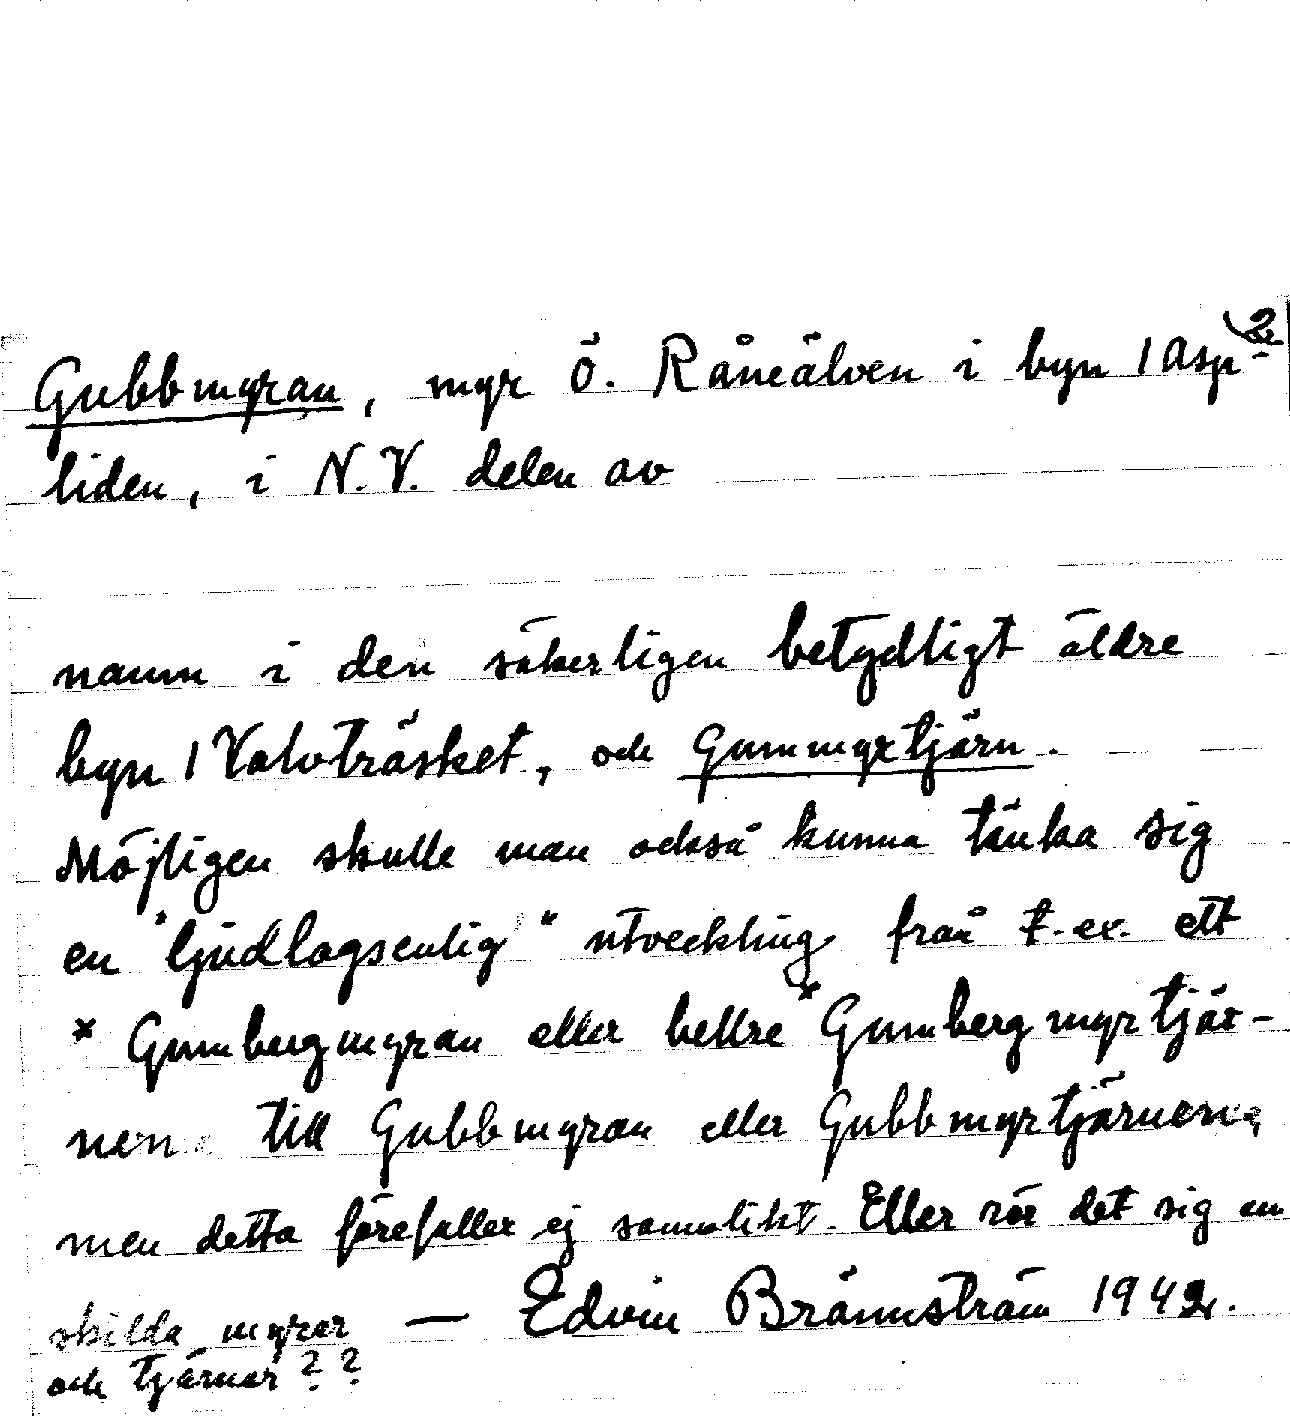 2
Gubbmyran, myr Ö. Råneälven i byn / Asp-
liden, i N.V. delen av
namn i den säkerligen betydligt äldre
byn / Valvträsket, och Gummyrtjärn.
Möjligen skulle man också kunna tänka sig
en "ljudlagsenlig" utveckling från t.ex. ett
* Gumbergmyran eller bettre * Gumbergmyrtjär-
nen till Gubbmyran eller Gubbmyrtjärnen,
men detta förefaller ej sannolikt. Eller rör det sig om
skilda myrar — Edvin Brännström 1942.
och tjärnar??